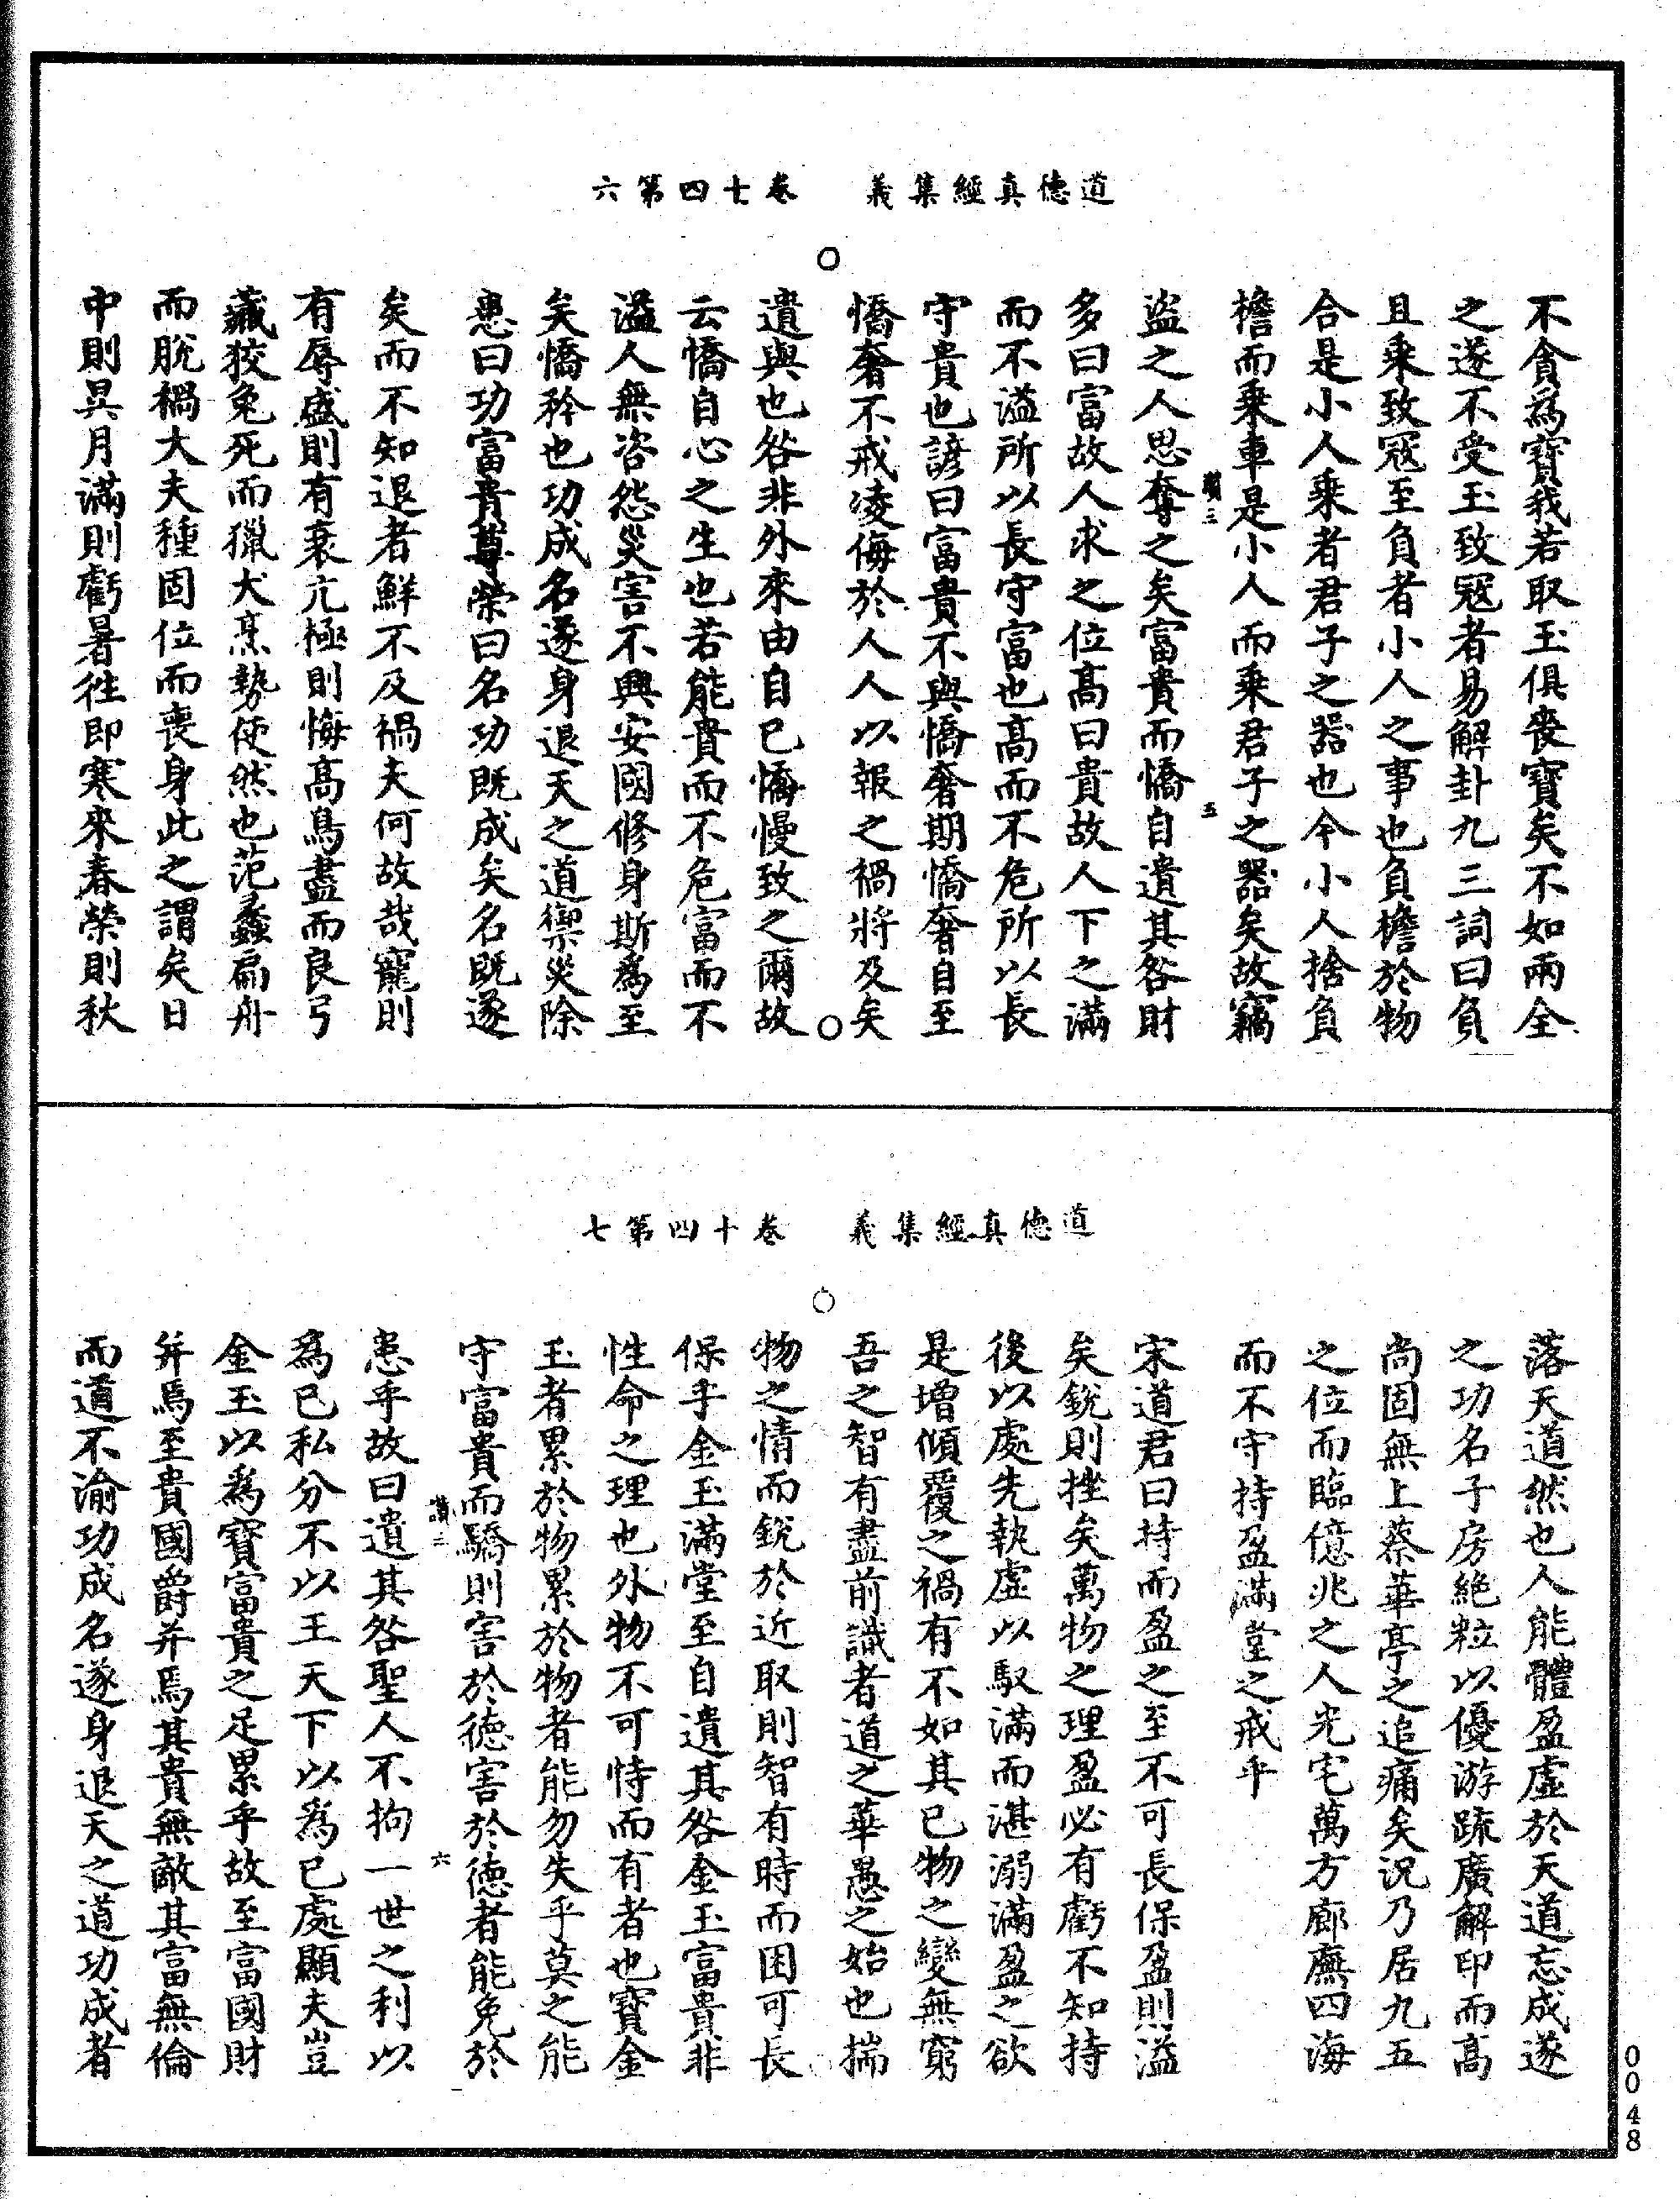 道德真經集義　卷十四第六
不貪為寶我若取玉俱喪寶矣不如兩全
之遂不受玉致寇者易解卦九三詞曰負
且乘致寇至負者小人之事也負檐於物
合是小人乘者君子之器也今小人捨負
檐而乘車是小人而乘君子之器矣故竊
讚三　五
盜之人思奪之矣富貴而憍自遺其咎財
多曰富故人求之位髙曰貴故人下之滿
而不溢所以長守富也髙而不危所以長
守貴也諺曰富貴不與憍奢期憍奢自至
憍奢不戒凌侮於人人以報之禍將及矣
遺與也咎非外來由自己憍慢致之爾故
云憍自心之生也若能貴而不危富而不
溢人無咨怨災害不興安國修身斯為至
矣憍矜也功成名遂身退天之道禦災除
患曰功富貴尊榮曰名功既成矣名既遂
矣而不知退者鮮不及禍夫何故哉寵則
有辱盛則有衰亢極則悔髙鳥盡而良弓
藏狡兔死而獵犬烹勢使然也范蠡扁舟
而脫禍大夫種固位而喪身此之謂矣日
中則昃月滿則虧暑徃即寒來春榮則秋
道德真經集義　卷十四第七
落天道然也人能體盈虛於天道忘成遂
之功名子房絕粒以優游踈廣解印而髙
尚固無上蔡華亭之追痛矣況乃居九五
之位而臨億兆之人光宅萬方廊廡四海
而不守持盈滿堂之戒乎
宋道君曰持而盈之至不可長保盈則溢
矣銳則挫矣萬物之理盈必有虧不知持
後以處先執虛以馭滿而湛溺滿盈之欲
是增傾覆之禍有不如其已物之變無窮
吾之智有盡前識者道之華愚之始也揣
物之情而銳於近取則智有時而困可長
保乎金玉滿堂至自遺其咎金玉富貴非
性命之理也外物不可恃而有者也寶金
玉者累於物累於物者能勿失乎莫之能
守富貴而驕則害於德害於德者能免於
讚三　六
患乎故曰遺其咎聖人不拘一世之利以
為已私分不以王天下以為已處顯夫豈
金玉以為寶富貴之足累乎故至富國財
并焉至貴國爵并焉其貴無敵其富無倫
而道不渝功成名遂身退天之道功成者
0048